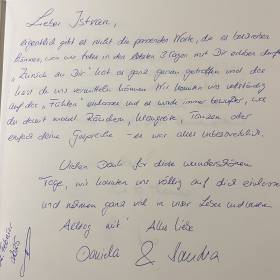 Lieber Istvan,
eigentlich gibt es nicht die passenden Worte, die es beschreiben
können, was wir haben in den letzten 3 Tagen mit Dir erleben durften
"Zurück zu Dir" hat es ganz genau getroffen und das
hast du uns vermitteln können. Wir konnten uns vollständig
auf das "Fühlen" einlassen und es wurde immer bewusster, was
du damit meinst. Räuchern, Klangreise, Tanzen oder
einfach deine Gespräche - es war alles unbeschreiblich.
Vielen Dank für diese wunderschönen
Tage, wir konnten uns völlig auf dich einlassen
und nehmen ganz viel in unser Leben und unseren
Alltag mit! Alles Liebe
Daniela & Sandra
Februar
2025